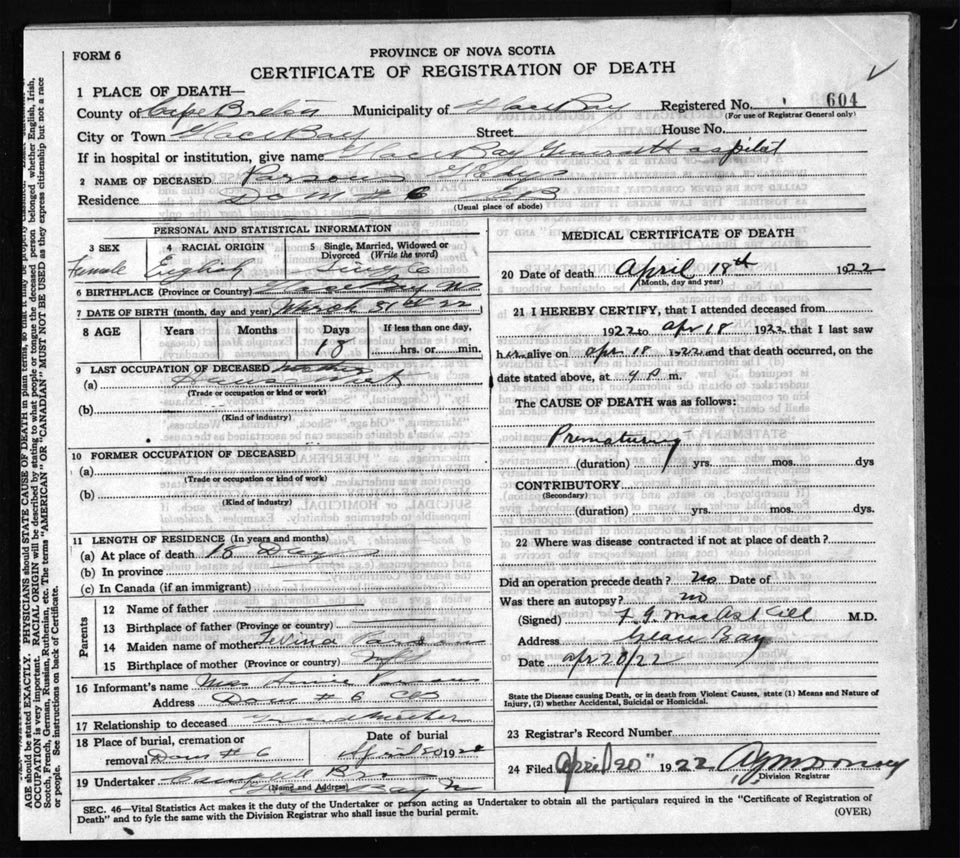 FORM 6
PROVINCE OF NOVA SCOTIA
CERTIFICATE OF REGISTRATION OF DEATH
1 PLACE OF DEATH—
County of Cape Breton Municipality of Glace Bay Registered No. 604
(For use of Registrar General only)
City or Town Glace Bay Street House No.
If in hospital or institution, give name Glace Bay General Hospital
2 NAME OF DECEASED Parsons Gladys
Residence Dom # 6 CB
(Usual place of abode)
PERSONAL AND STATISTICAL INFORMATION
3 SEX 4 RACIAL ORIGIN 5 Single, Married, Widowed or Divorced (Write the word)
Female English Single
6 BIRTHPLACE (Province or Country) Glace Bay NS
7 DATE OF BIRTH (month, day and year) March 31st 22
8 AGE Years Months Days If less than one day,
18 hrs. or min.
9 LAST OCCUPATION OF DECEASED mother
(a)
(Trade or occupation or kind or work)
(b)
(Kind of industry)
10 FORMER OCCUPATION OF DECEASED
(a)
(Trade or occupation or kind of work)
(b)
(Kind of industry)
11 LENGTH OF RESIDENCE (In years and months)
(a) At place of death 18 Days
(b) In province
(c) In Canada (if an immigrant)
Parents
12 Name of father
13 Birthplace of father (Province or country)
14 Maiden name of mother Levina Parsons
15 Birthplace of mother (Province or country) Nfld
16 Informant's name Mrs Annie Parsons
Address Dom # 6 CB
17 Relationship to deceased Grandmother
18 Place of burial, cremation or removal Dom # 6
Date of burial April 20 192
19 Undertaker Bros
(Name and Address) Glace Bay
MEDICAL CERTIFICATE OF DEATH
20 Date of death April 18th 1922
(Month, day and year)
21 I HEREBY CERTIFY, that I attended deceased from
1922 to apr 18 1922 that I last saw
her alive on apr 18 1922 and that death occurred, on the
date stated above, at 4 P m.
The CAUSE OF DEATH was as follows:
Prematurity
(duration) yrs. mos. dys
CONTRIBUTORY
(Secondary)
(duration) yrs. mos. dys.
22 Where was disease contracted if not at place of death?
Did an operation precede death? No Date of
Was there an autopsy? no
(Signed) M.D.
Address Glace Bay
Date apr 20/22
State the Disease causing Death, or in death from Violent Causes, state (1) Means and Nature of Injury, (2) whether Accidental, Suicidal or Homicidal.
23 Registrar's Record Number
24 Filed April 20" 1922
Division Registrar
SEC. 46—Vital Statistics Act makes it the duty of the Undertaker or person acting as Undertaker to obtain all the particulars required in the "Certificate of Registration of
Death" and to fyle the same with the Division Registrar who shall issue the burial permit. (OVER)
AGE should be stated EXACTLY. PHYSICIANS should STATE CAUSE OF DEATH in plain terms, so that it may be properly
OCCUPATION is very important. RACIAL ORIGIN will be described by stating to what people or tongue the deceased person belonged whether English, Irish,
Scotch, French, German, Russian, Ruthenian, etc. The terms "AMERICAN" OR "CANADIAN" MUST NOT BE USED as they express citizenship but not a race
or people. See instructions on back of Certificate.